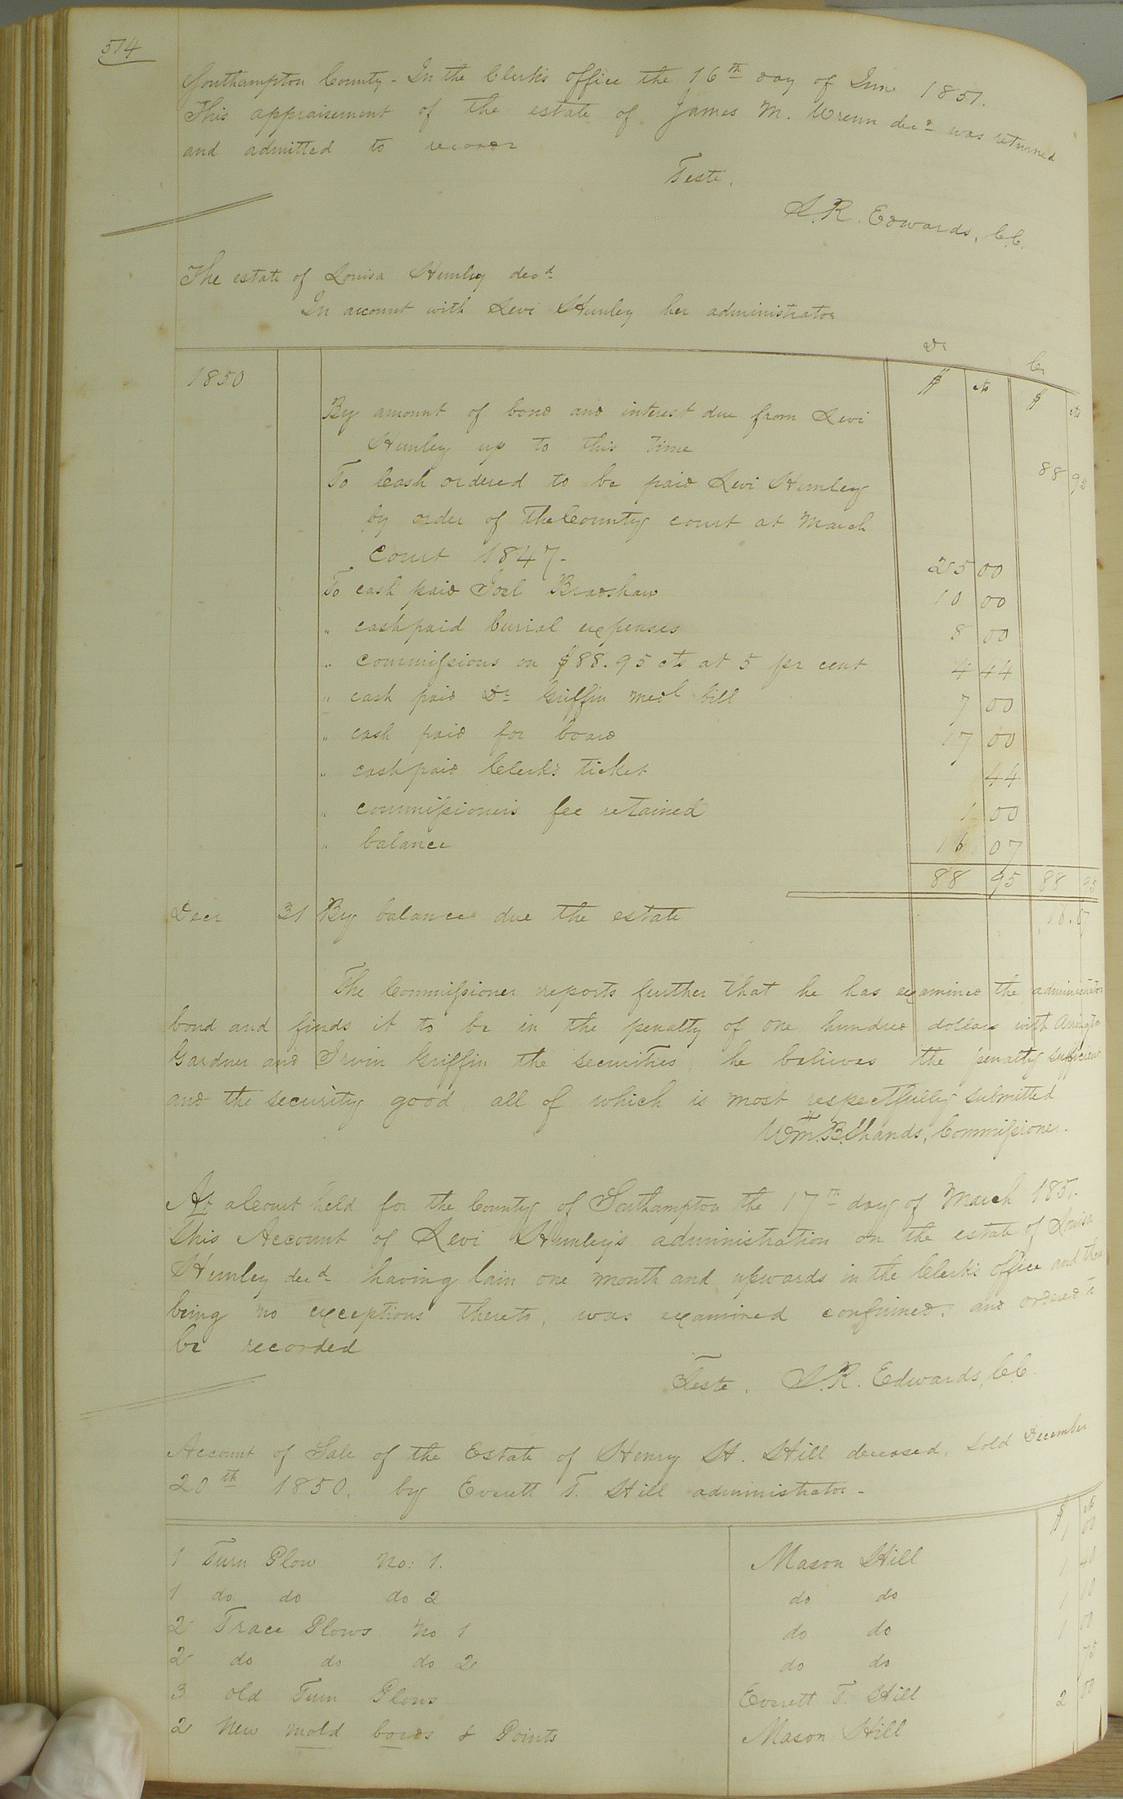 514
Southampton County - In the Clerk's office the 16th day of June 1851.
This appraisement of the estate of James M. Wrenn decd was returned
and admitted to record
Teste,
L. R. Edwards, C.C.
The estate of Louisa Hunley decd
In account with Levi Hunley her administrator
Dr Cr
1850 $ cts $ cts
By amount of bond and interest due from Levi
Hunley up to this time 88 95
To Cash ordered to be paid Levi Hunley
by order of the County court at March
Court 1847- 25 00
To cash paid Joel Bradshaw 10 00
" cash paid burial expenses 8 00
" commissions on $88.95 cts at 5 per cent 4 44
" cash paid Dr Griffin medl bill 7 00
" cash paid for board 17 00
" cash paid Clerks ticket 44
" commissioner's fee retained 1 00
" balance 16 07
88 95 88 95
Decr 31 By balance due the estate 16.07
The Commissioner reports further that he has examined the administrator
bond and finds it to be in the penalty of one hundred dollars with
Gardner and Irvin Griffin the securities, he believes the penalty sufficient
and the security good all of which is most respectfully submitted
Wm. B. Shands, Commissioner.
At a Court held for the County of Southampton the 17th day of March 1851.
This Account of Levi Hunley's administration on the estate of Louisa
Hunley decd having lain one month and upwards in the Clerk's office and there
being no exceptions thereto, was examined confirmed, and ordered to
be recorded
Teste, L. R. Edwards, C.C.
Account of Sale of the Estate of Henry H. Hill deceased, Sold December
20th 1850, by Everett T. Hill administrator -
$ cts
1 Turn Plow No: 1. Mason Hill 1 00
1 do do do 2 do do 1 40
2 Trace Plows No 1 do do 1 10
2 do do do 2 do do 1 00
3 old Turn Plows Everett T. Hill 75
2 New mold bords & Points Mason Hill 2 00